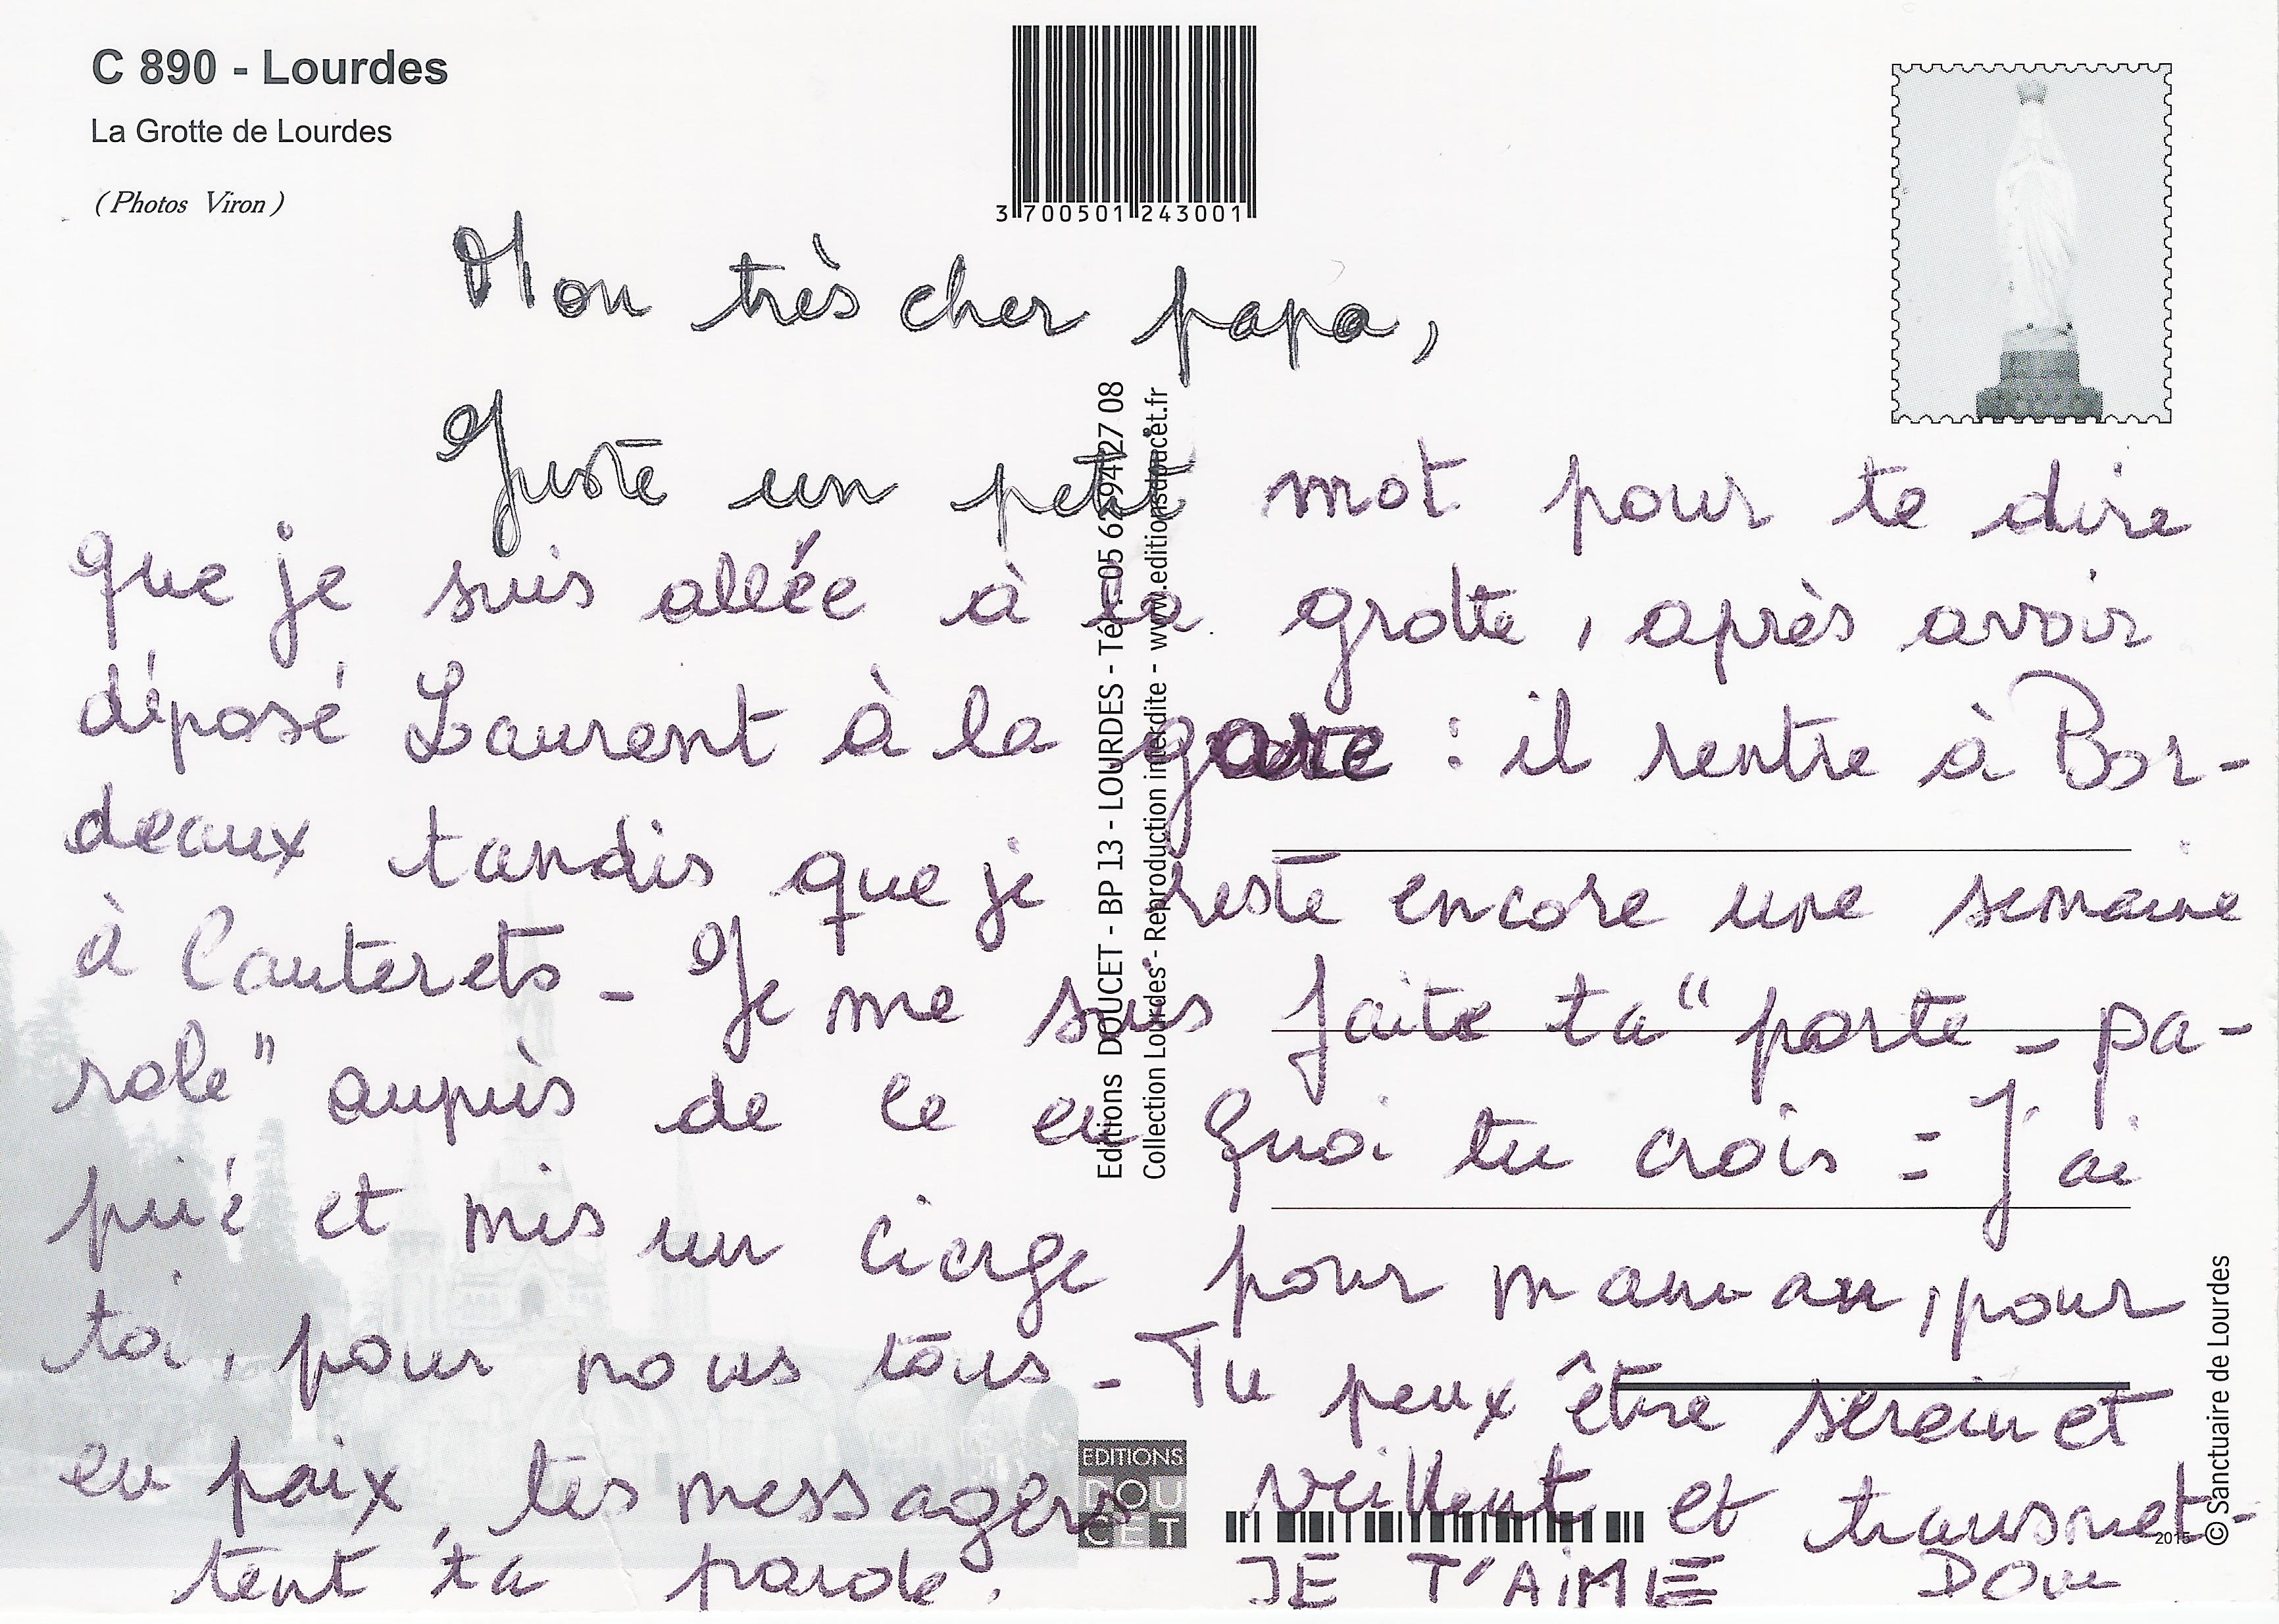 C 890 - Lourdes
La Grotte de Lourdes
(Photos Viron)
3 700501 243001
Mon très cher papa,
Juste un petit mot pour te dire
que je suis allée à la grotte, après avoir
déposé Laurent à la gare : il rentre à Bor-
deaux tandis que je reste encore une semaine
à Cauterets - Je me suis faite ta "porte - pa-
role" auprès de ce en quoi tu crois = J'ai
prié et mis un cierge pour maman, pour
toi, pour nous tous - Tu peux être serein et
en paix, tes messagers veillent et transmet-
tent ta parole.
JE T'AiME Dom
Editions DOUCET - BP 13 - LOURDES - Tél. 05 62 94 27 08
Collection Lourdes - Reproduction interdite - www.editionsdoucet.fr
EDITIONS
DOU
CET
2015
© Sanctuaire de Lourdes